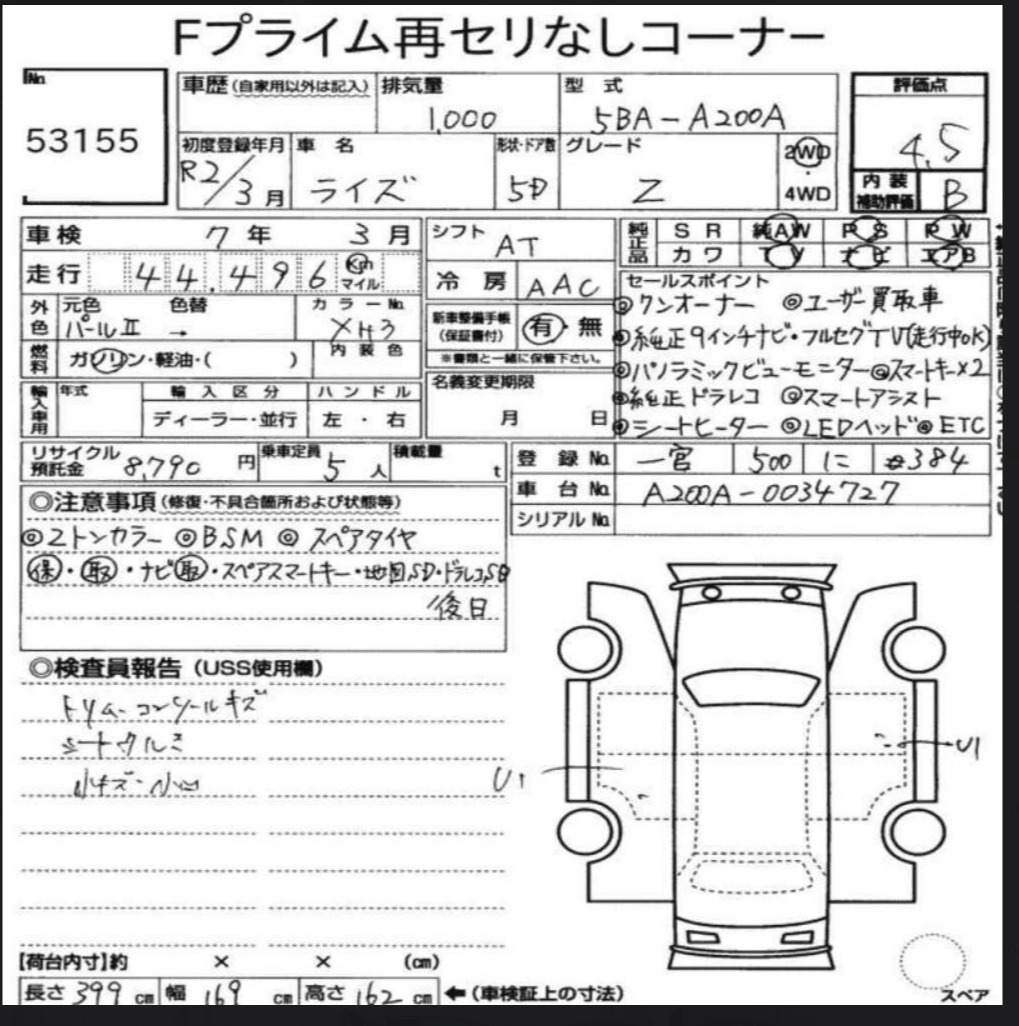 Fプライム再セリなしコーナー
No.
53155
車歴(自家用以外は記入) 排気量 1,000
型式 5BA-A200A
評価点 4.5
初度登録年月 R2/3月
車名 ライズ
形状・ドア数 5D
グレード Z
2WD・4WD
内装補助評価 B
車検 7年 3月
シフト AT
純正品 SR 純AW PS PW
カワ TV ナビ エアB
走行 44,496 Km マイル
冷房 AAC
外色 元色 パールⅡ 色替 → カラーNo. XH3
新車整備手帳(保証書付) 有・無
※書類と一緒に保管下さい。
燃料 ガソリン・軽油・( ) 内装色
輸入車用 年式 輸入区分 ディーラー・並行 ハンドル 左・右
名義変更期限 月 日
セールスポイント
◎ワンオーナー ◎ユーザー買取車
◎純正9インチナビ・フルセグTV(走行中OK)
◎パノラミックビューモニター◎スマートキー×2
◎純正ドラレコ ◎スマートアシスト
◎シートヒーター ◎LEDヘッド◎ETC
リサイクル預託金 8,790円 乗車定員 5人 積載量 t
登録No. 一宮 500 に #384
車台No. A200A-0034727
シリアルNo.
◎注意事項(修復・不具合箇所および状態等)
◎2トンカラー ◎BSM ◎スペアタイヤ
保・取・ナビ取・スペアスマートキー・地図SD・ドラレコSD
/後日
◎検査員報告(USS使用欄)
トリム・コンソールキズ
シートクルミ
小キズ・小凹
U1
U1
【荷台内寸】約 × × (cm)
長さ 399cm 幅 169cm 高さ 162cm ←(車検証上の寸法)
スペア